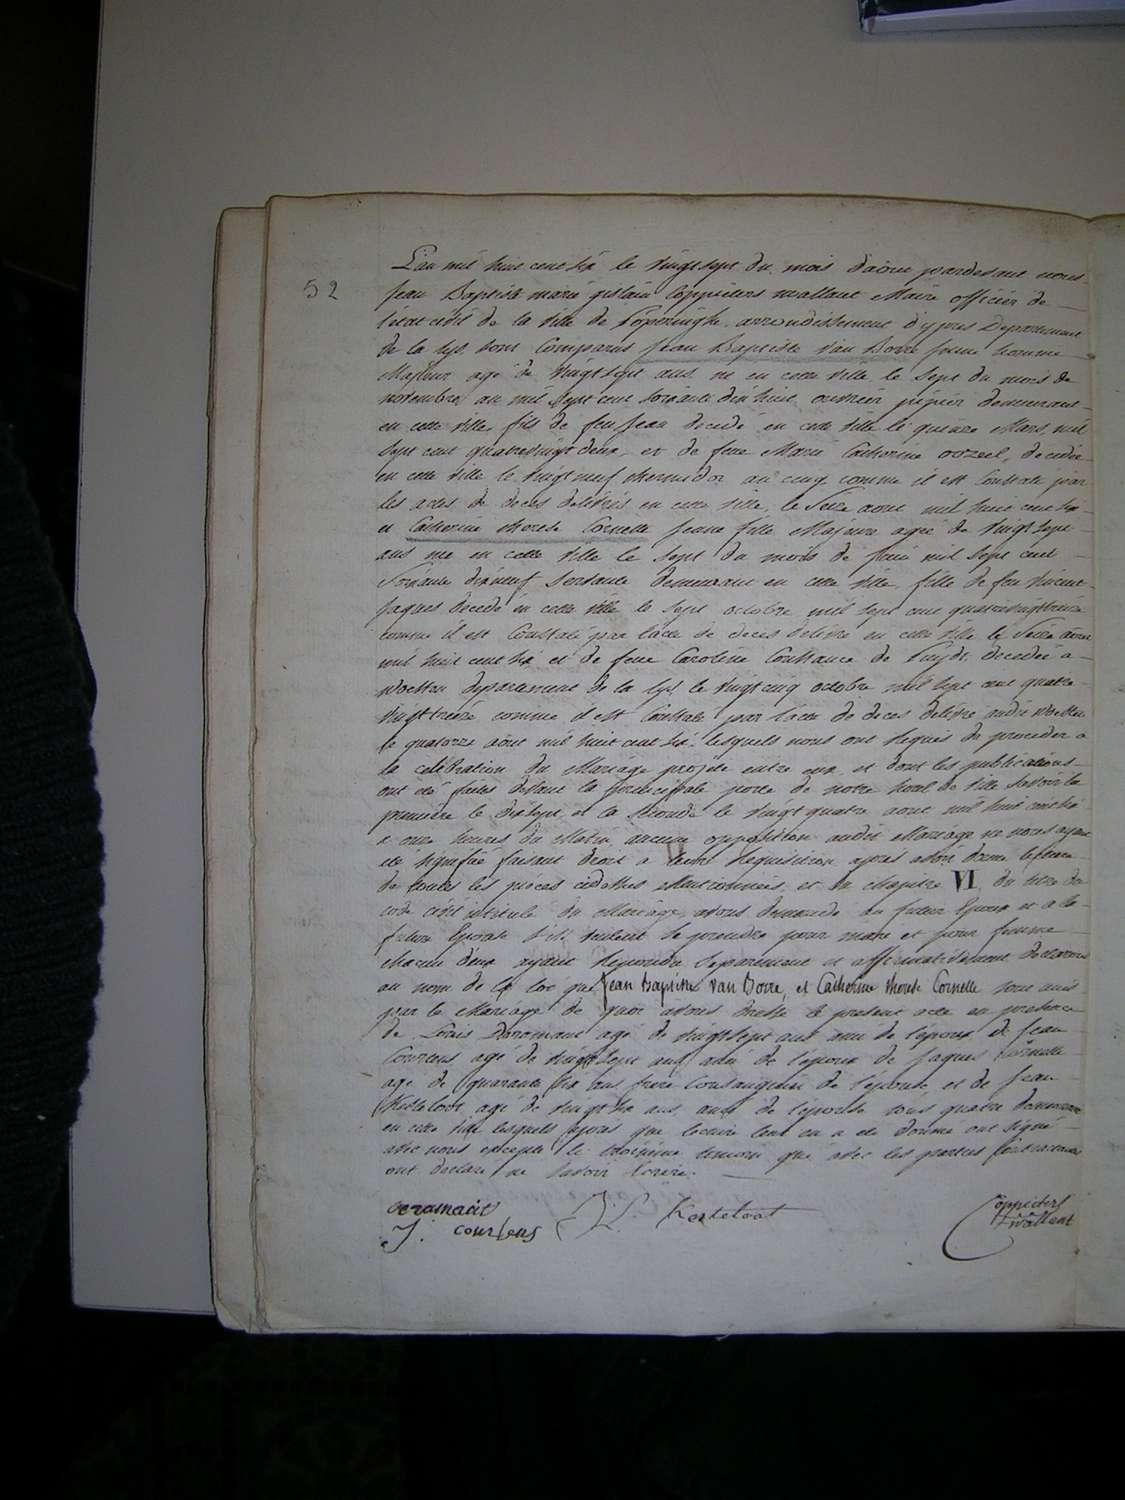 52
L'an mil huit cent six le vingt sept du mois d'aout pardevant nous
Jean Baptiste marie gislain Coppieters wallant Maire officier de
l'etat civil de la ville de Poperinghe arrondissement d'ypres Departement
de la Lys sont Comparus Jean Baptiste Van Borre jeune homme
Majeur agé de vingt sept ans né en cette ville le sept du mois de
novembre an mil sept cent soixante dix huit ouvrier demeurant
en cette ville fils de feu Jean decedé en cette ville le quinze Mars mil
sept cent quatrevingt deux et de feue Marie Catherine decedée
en cette ville le vingt neuf thermidor an cinq comme il est Constaté par
les actes de deces delivrés en cette ville le Seize aout mil huit cent six
et Catherine therese Cornette jeune fille Majeure agée de vingt sept
ans née en cette ville le sept du mois de juin mil sept cent
Soixante dixneuf servante demeurant en cette ville fille de feu Vincent
Jaques decedé en cette ville le sept octobre mil sept cent quatrevingt treize
comme il est Constaté par l'acte de deces delivré en cette ville le Seize aout
mil huit cent six et de feue Caroline Constance de Puydt decedée a
Woesten departement de la Lys le vingt cinq octobre mil sept cent quatre
vingt treize comme il est Constaté par l'acte de deces delivré audit Woesten
le quatorze aout mil huit cent six lesquels nous ont requis de proceder a
la celebration du Mariage projeté entre eux et dont les publications
ont été faites devant la principale porte de notre hotel de ville savoir la
premiere le dixsept et la seconde le vingt quatre aout mil huit cent six
a onze heures du Matin, aucune opposition audit Mariage ne nous ayant
été signifiée faisant droit a leur requisition apres avoir donné lecture
de toutes les pièces cidessus Mentionnées et du chapitre VI du titre du
code civil intitulé du Mariage, avons demandé au futur Epoux et a la
future Epouse s'ils veulent se prendre pour mari et pour femme
chacun deux ayant repondu separement et affirmativement declarons
au nom de la loi que Jean Baptiste Van Borre, et Catherine therese Cornette sont unis
par le Mariage de quoi avons dressé le present acte en presence
de Louis agé de vingt sept ans ami de l'epoux de Jean
Courtens agé de vingt sept ans ami de l'epoux de Jaques Cornette
agé de quarante six ans frere Consanguin de l'épouse et de Jean
Kesteloot agé de vingt six ans ami de l'épouse tous quatre demeurant
en cette ville lesquels apres que lecture leur en a été donné ont signé
avec nous excepté le troisieme temoin qui avec les parties Contractantes
ont declaré ne savoir ecrire.
J. L. Kesteloot
Coppieters
wallant
J. courtens